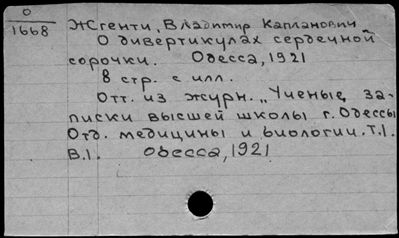 О
1668
Жгенти, Владимир Капланович
О дивертикулах сердечной
сорочки. Одесса, 1921
8 стр. с илл.
Отт. из журн. „Ученые за-
писки высшей школы г. Одессы
Отд. медицины и биологии. Т.I.
В.I. Одесса, 1921